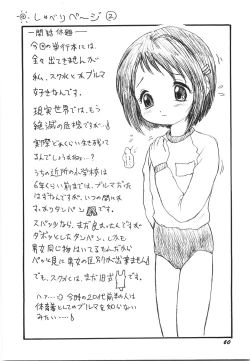 しゃべりページ②
―閑話休題―
今回の単行本には、
全々出てきませんが
私、スク水と水ブルマ
好きなんです。
現実世界では、もう
絶滅の危機ですが…
実際どれくらい生き残って
るんでしょうね…?
うちの近所の小学校は
6年くらい前までは、ブルマだった
はずなんですが、いつの間にか
すっかりタンパン
スパッツなら、まだ良かったんですが
ダボッとしたタンパン、しかも
男女同じ物はいてるもんだから
パッと見に男女の区別が出来ません
でも、スク水には、まだ旧式
ハァ…今時の20代前半の人は
体育着としてのブルマを知らない
みたい…
60